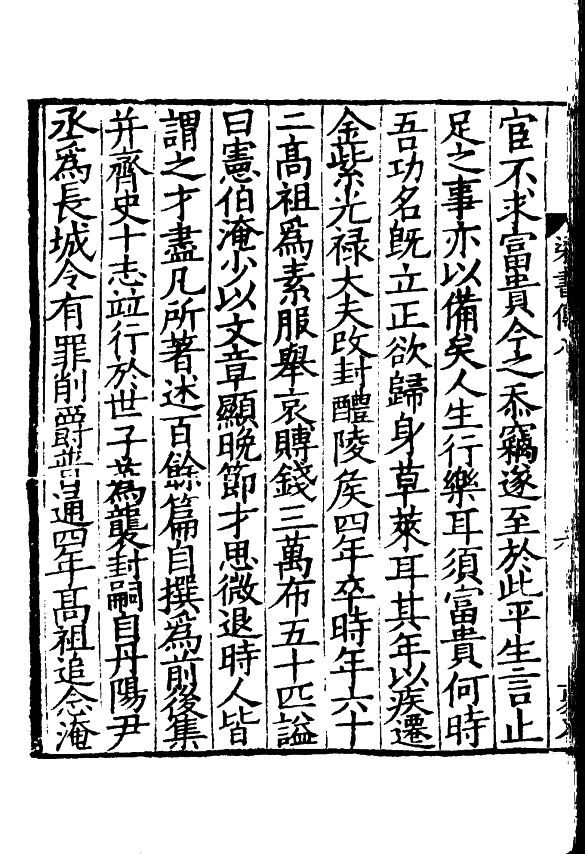 宦不求富貴今之忝竊遂至於此平生言止
足之事亦以備矣人生行樂耳須富貴何時
吾功名旣立正欲歸身草萊耳其年以疾遷
金紫光禄大夫改封醴陵侯四年卒時年六十
二髙祖爲素服舉哀賻錢三萬布五十匹謚
曰憲伯淹少以文章顯晚節才思微退時人皆
謂之才盡凡所著述百餘篇自撰爲前後集
并齊史十志並行於世子蒍襲封嗣自丹陽尹
丞爲長城令有罪削爵普通四年髙祖追念淹